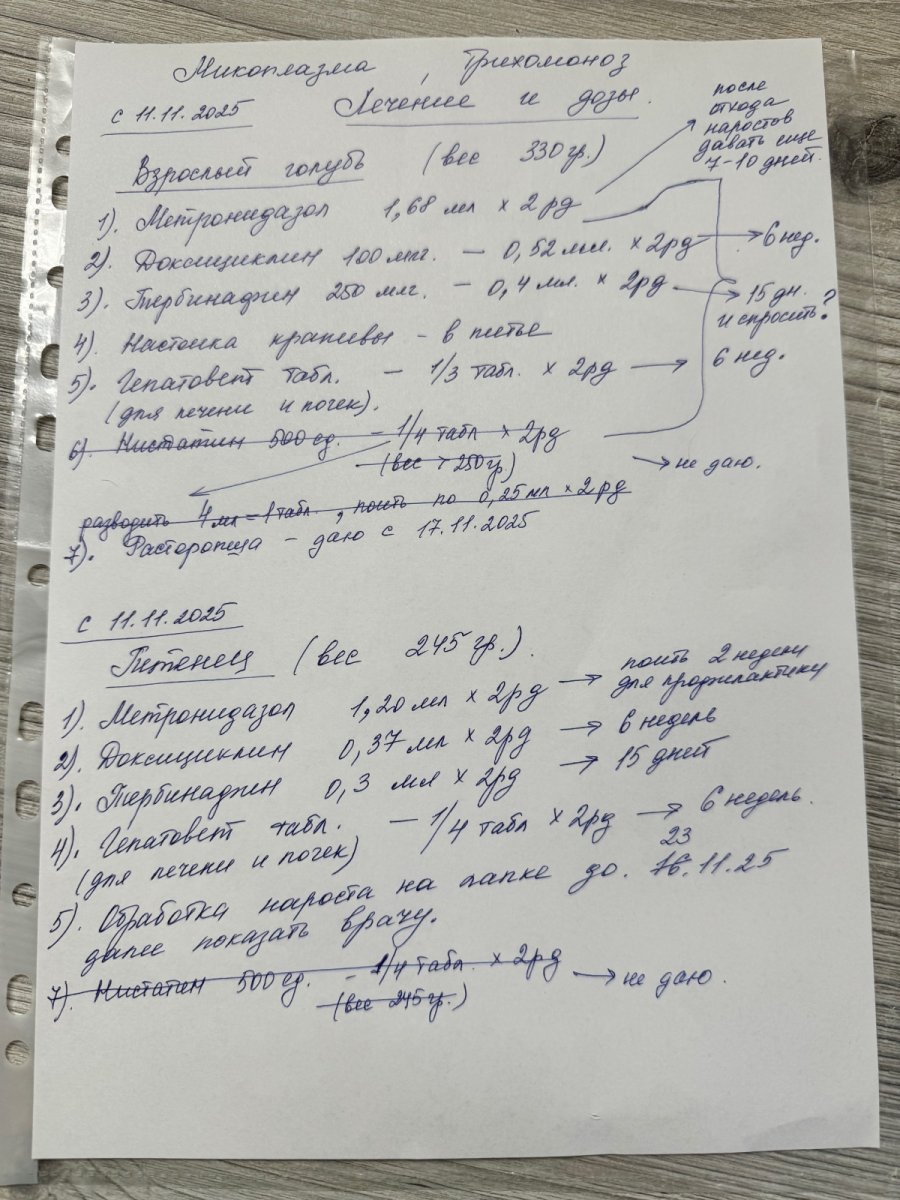 Микоплазма, Трихомоноз
с 11.11.2025 Лечение и дозы.
после
отхода
наростов
давать еще
7-10 дней.
Взрослый голубь (вес 330гр.)
1). Метронидазол 1,68 мл × 2рд
2). Доксициклин 100мг. - 0,52мл. × 2рд → 6 нед.
3). Тербинафин 250 мг. - 0,4 мл. × 2рд → 15 дн.
и спросить?
4). Настойка крапивы - в питье
5). Гепатовет табл. - 1/3 табл. × 2рд → 6 нед.
(для печени и почек).
6). Нистатин 500ед. - 1/4 табл × 2рд
(вес > 250гр.) → не даю.
разводить 4мл = 1табл., поить по 0,25мл × 2рд
7). Расторопша - даю с 17.11.2025
с 11.11.2025
Птенец (вес 245гр.).
1). Метронидазол 1,20мл × 2рд → поить 2 недели
для профилактики
2). Доксициклин 0,37мл × 2рд → 6 недель
3). Тербинафин 0,3 мл × 2рд → 15 дней
4). Гепатовет табл. - 1/4 табл × 2рд → 6 недель.
(для печени и почек)
23
5). Обработка нароста на лапке до 16.11.25
далее показать врачу.
7). Нистатин 500ед. - 1/4 табл. × 2рд
(вес 245гр.) → не даю.